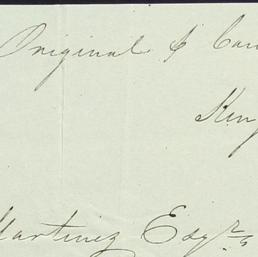 Original & Can
Kin
Martinez Esqrs